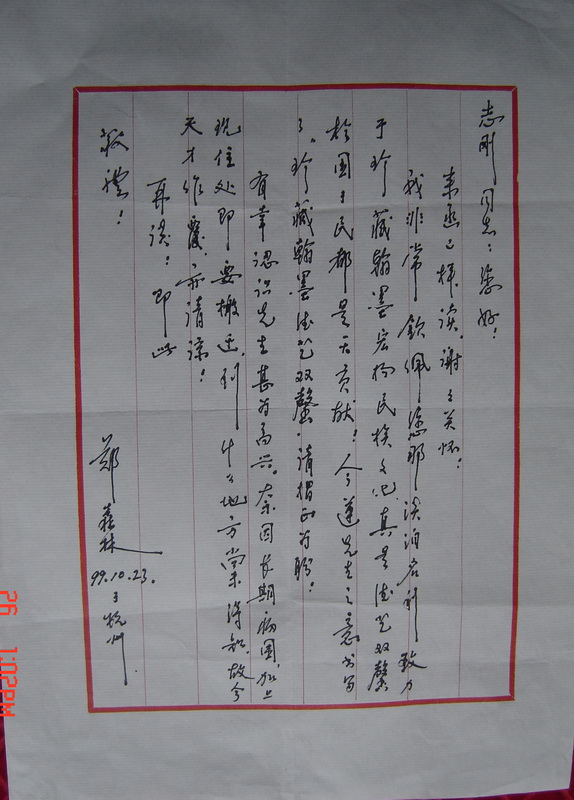 志刚同志：您好！
来函已拜读，谢谢关怀！
我非常钦佩您那淡泊名利致力
于珍藏翰墨宏扬民族文化，真是德艺双馨
于国于民都是大贡献！今遵先生之意书写
了，珍藏翰墨德艺双馨，请指正为盼！
有幸认识先生甚为高兴。奈因长期病困，加上
现住处即要搬迁，到什么地方尚未得知，故今
天才作覆，亦请谅！
再谈！即此
敬礼！
郑森林
99.10.23.
于杭州
26 1:02PM